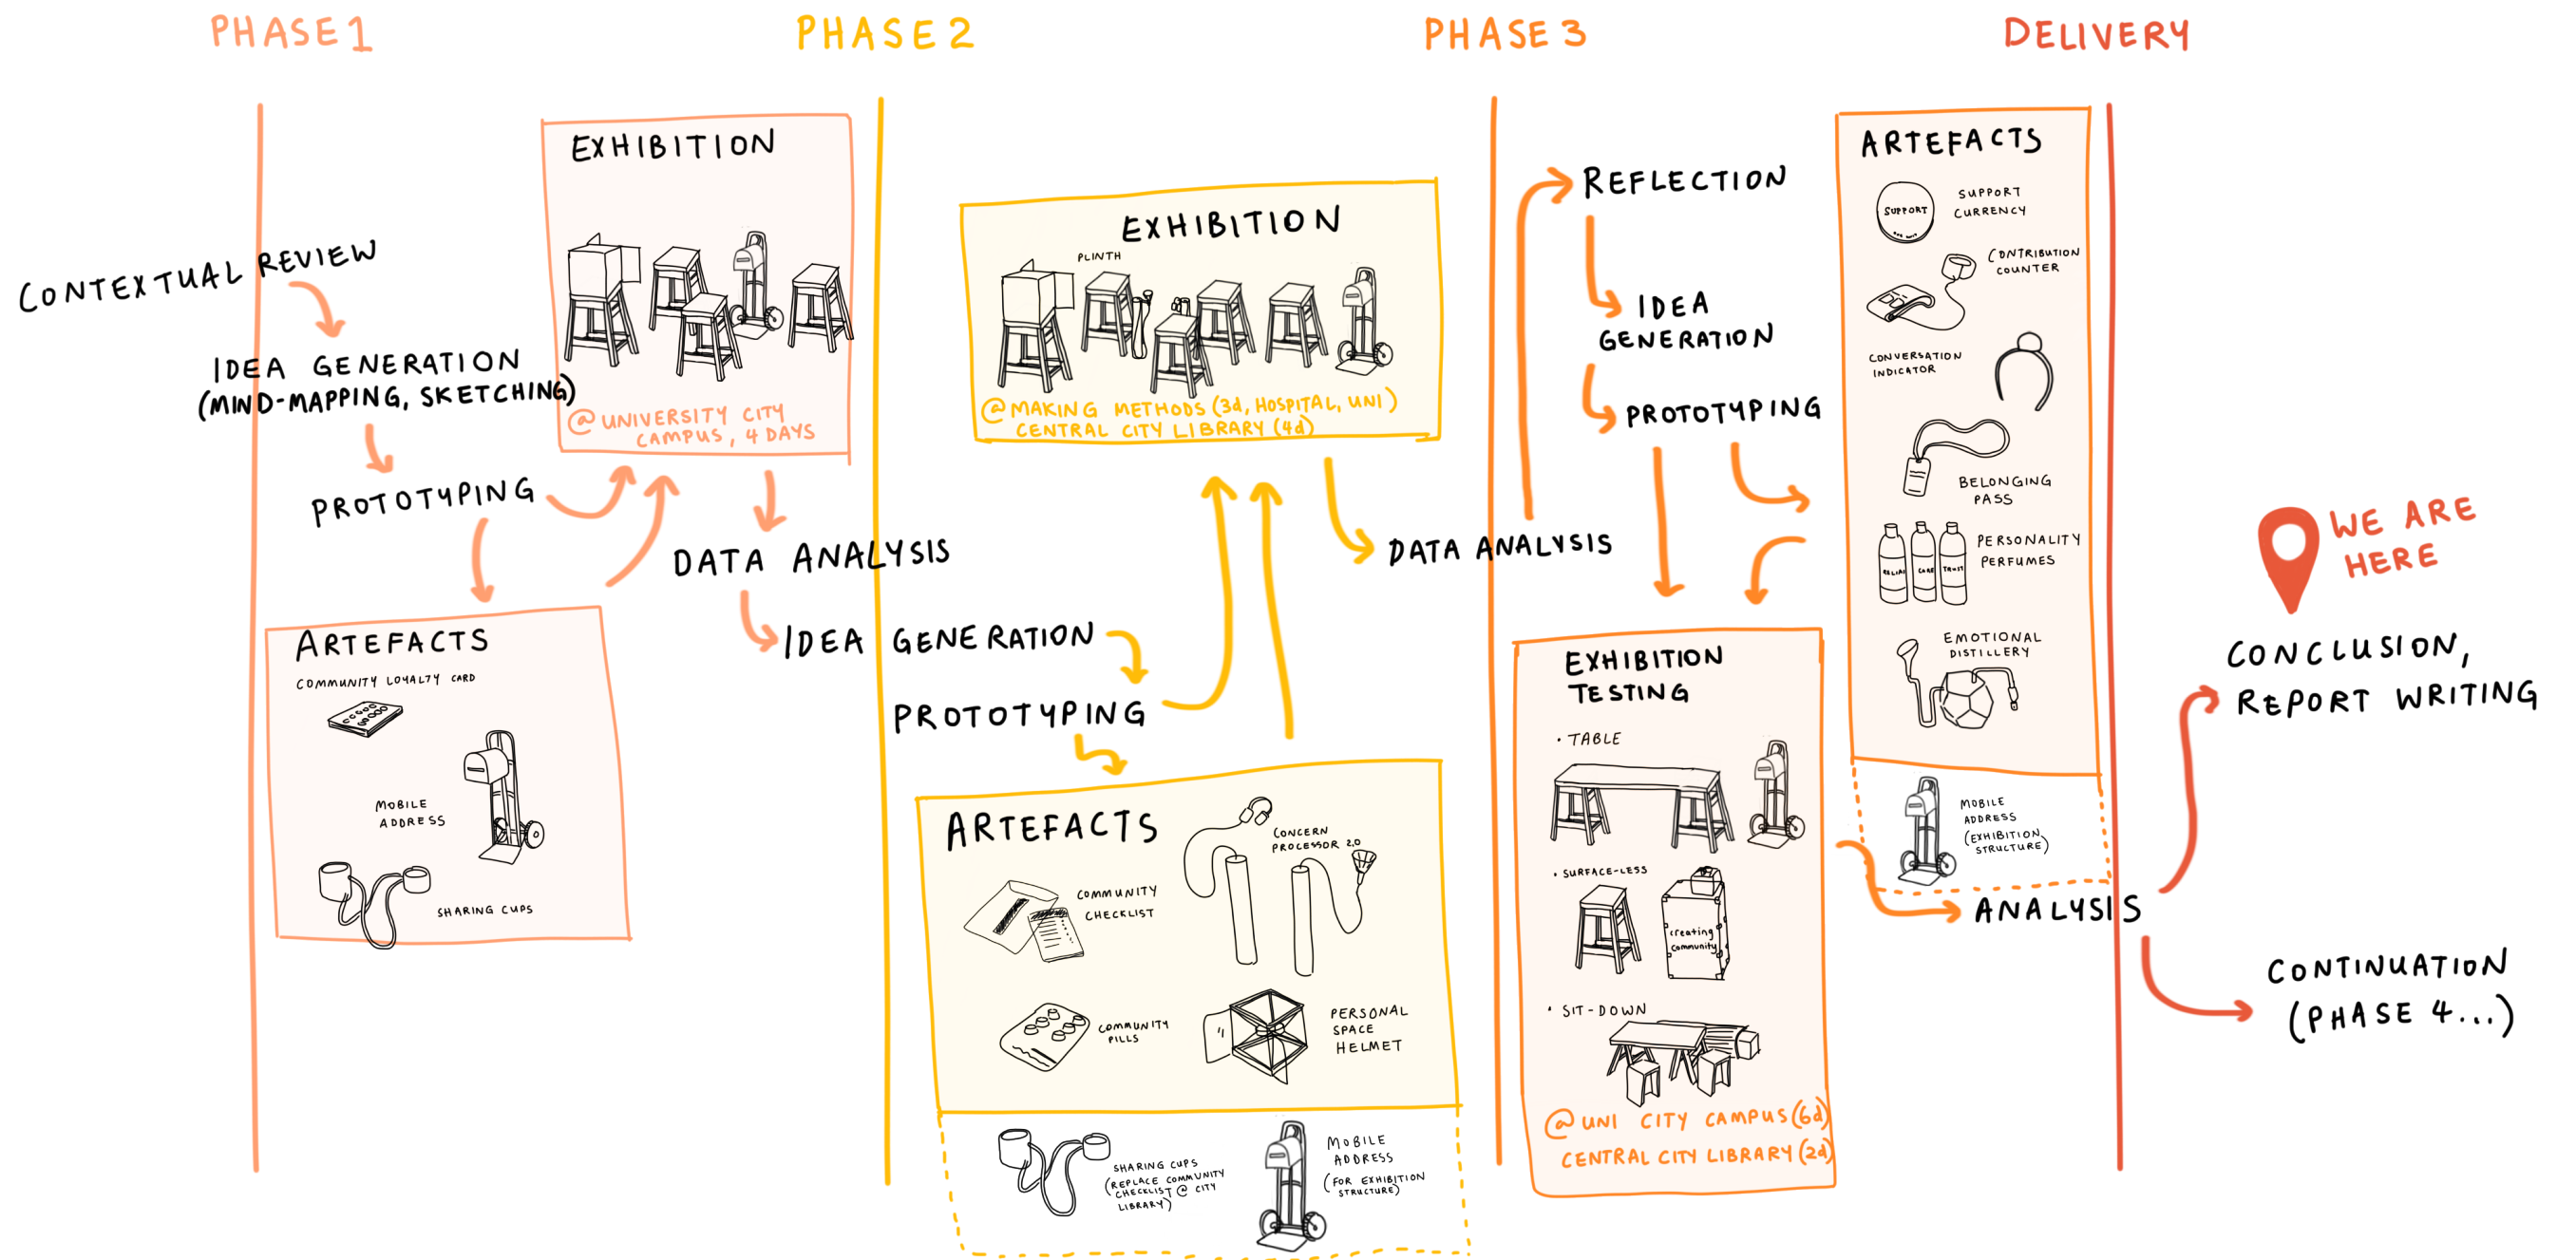 PHASE 1
PHASE 2
PHASE 3
DELIVERY
CONTEXTUAL REVIEW
IDEA GENERATION
(MIND-MAPPING, SKETCHING)
PROTOTYPING
EXHIBITION
@ UNIVERSITY CITY
CAMPUS, 4 DAYS
ARTEFACTS
COMMUNITY LOYALTY CARD
MOBILE
ADDRESS
SHARING CUPS
DATA ANALYSIS
IDEA GENERATION
PROTOTYPING
EXHIBITION
PLINTH
@ MAKING METHODS (3d, HOSPITAL, UNI)
CENTRAL CITY LIBRARY (4d)
ARTEFACTS
CONCERN
PROCESSOR 2.0
COMMUNITY
CHECKLIST
COMMUNITY
PILLS
PERSONAL
SPACE
HELMET
SHARING CUPS
(REPLACE COMMUNITY
CHECKLIST @ CITY
LIBRARY)
MOBILE
ADDRESS
(FOR EXHIBITION
STRUCTURE)
DATA ANALYSIS
REFLECTION
IDEA
GENERATION
PROTOTYPING
EXHIBITION
TESTING
• TABLE
• SURFACE-LESS
creating
community
• SIT-DOWN
@ UNI CITY CAMPUS (6d)
CENTRAL CITY LIBRARY (2d)
ARTEFACTS
SUPPORT
SUPPORT
CURRENCY
CONTRIBUTION
COUNTER
CONVERSATION
INDICATOR
BELONGING
PASS
CARE
TRUST
PERSONALITY
PERFUMES
EMOTIONAL
DISTILLERY
MOBILE
ADDRESS
(EXHIBITION
STRUCTURE)
ANALYSIS
WE ARE
HERE
CONCLUSION,
REPORT WRITING
CONTINUATION
(PHASE 4...)